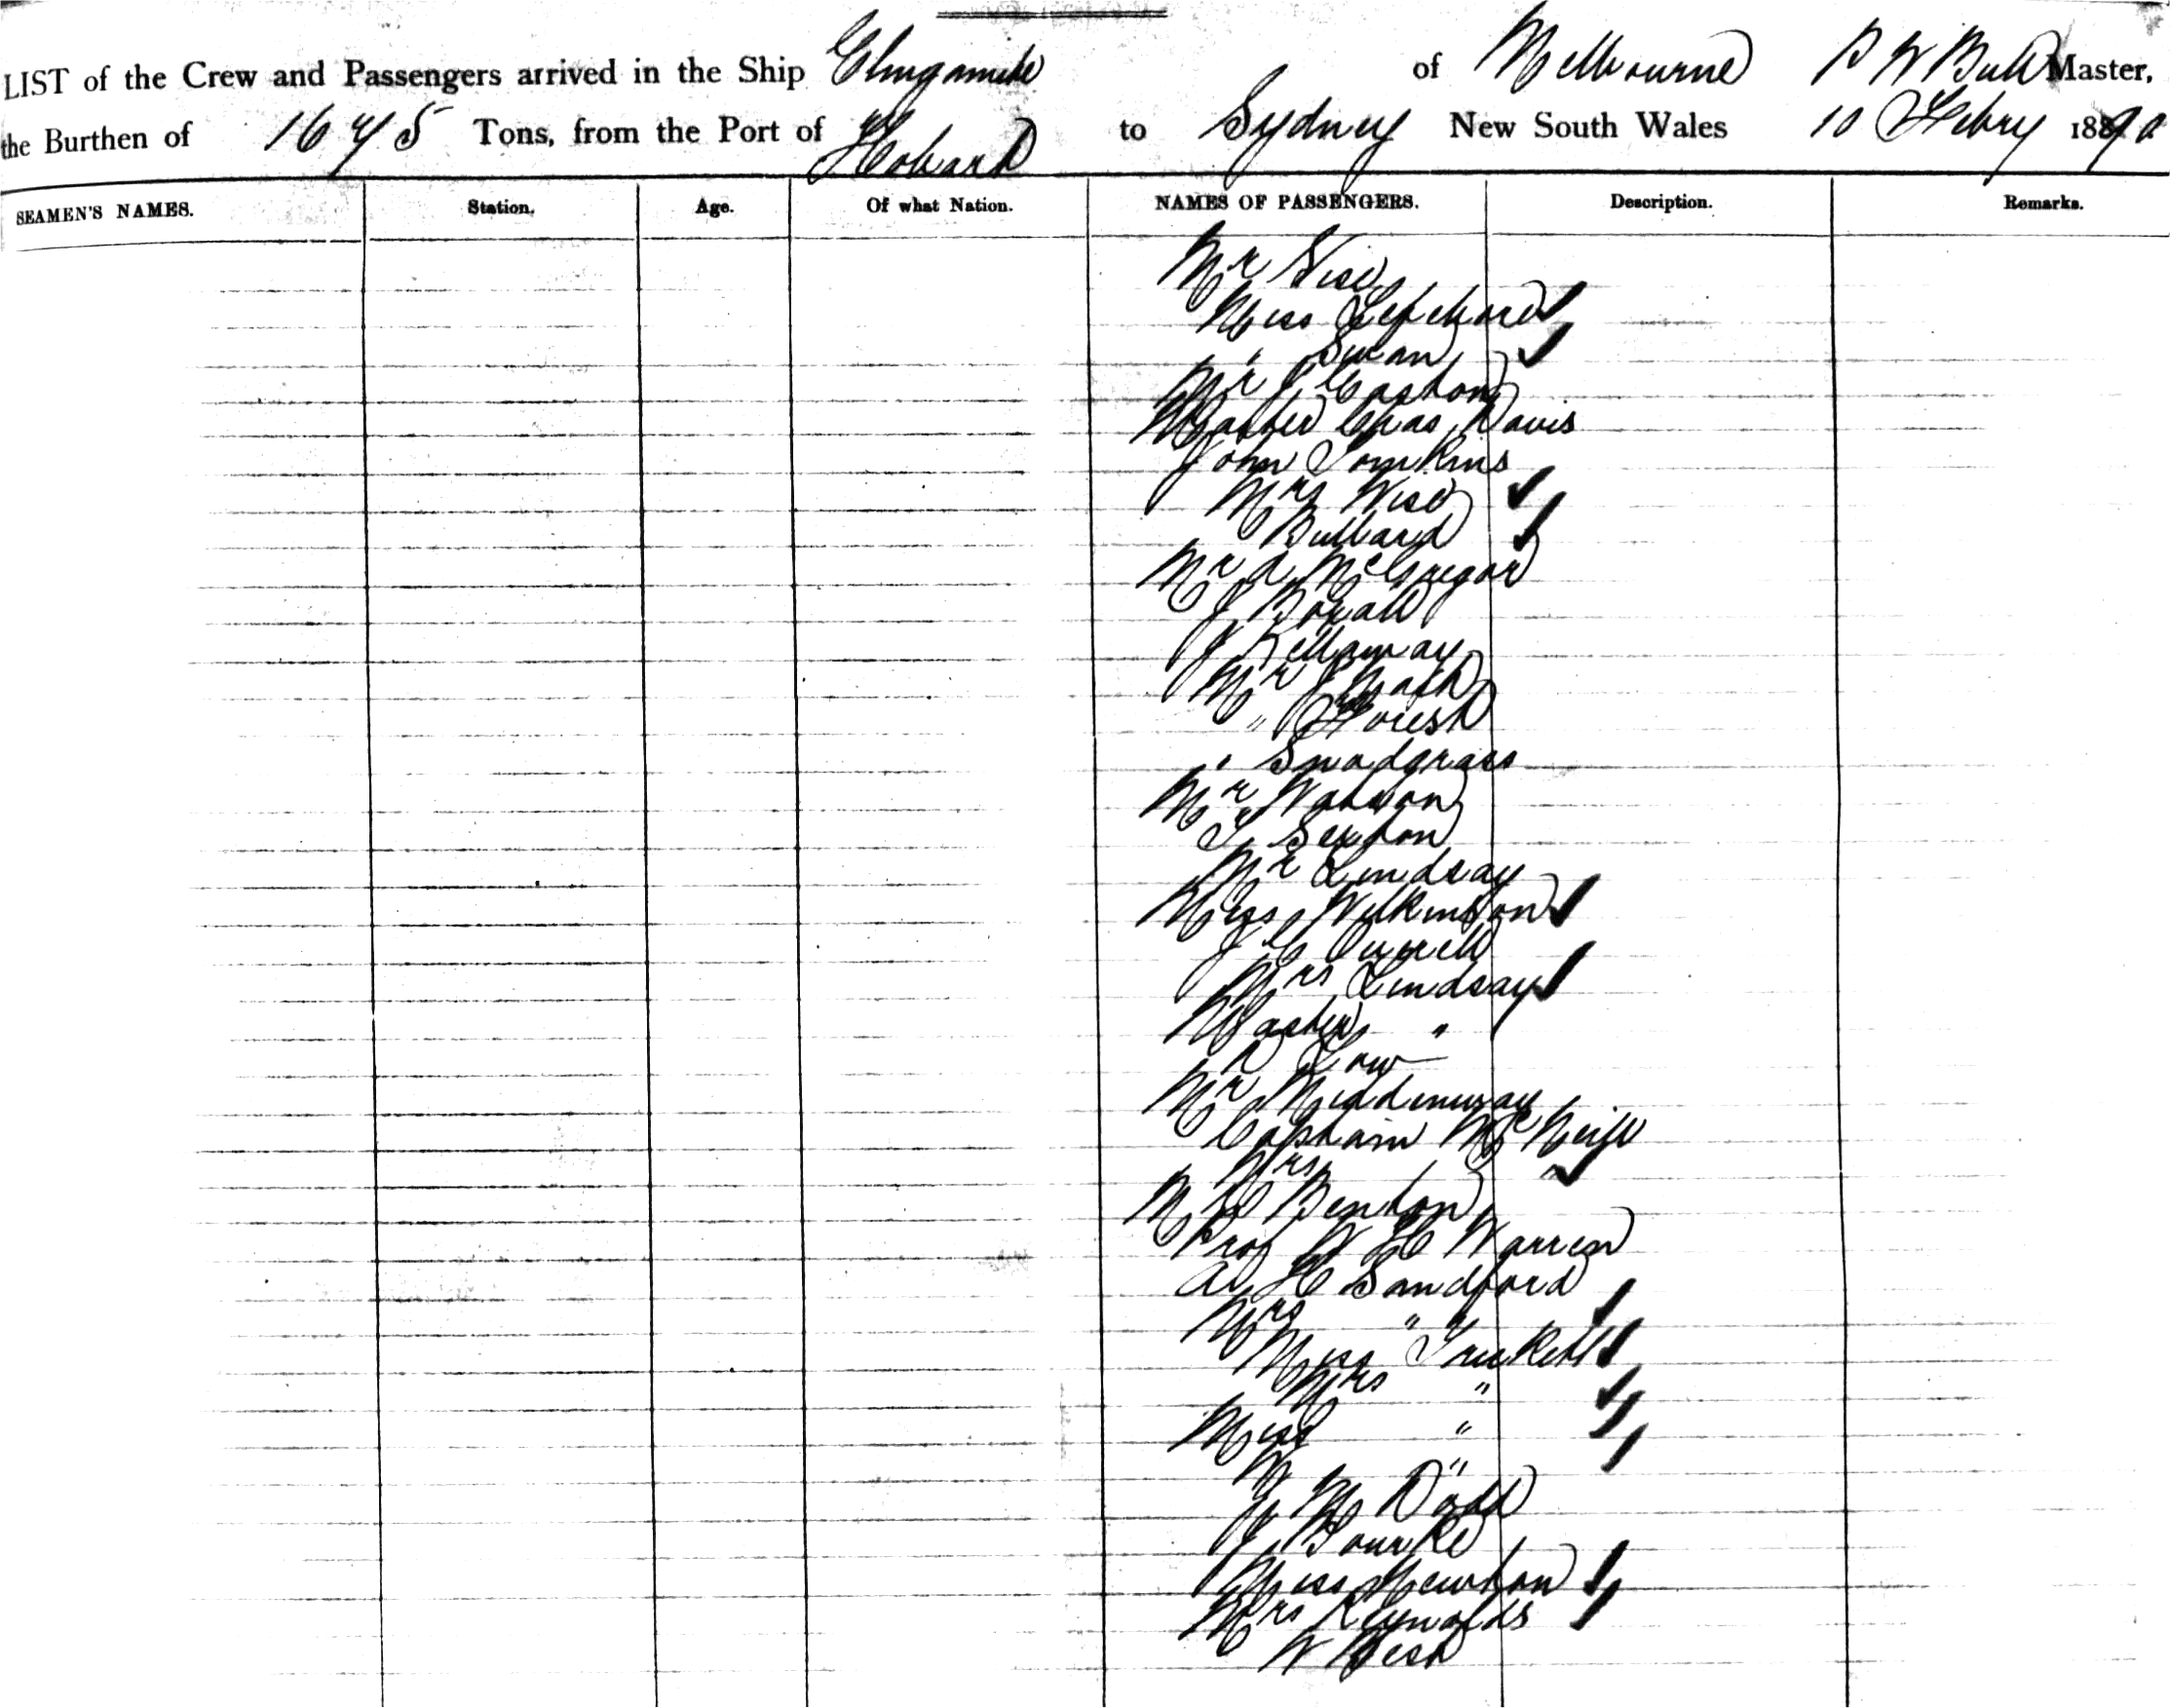 LIST of the Crew and Passengers arrived in the Ship Elingamite of Melbourne B W Bull Master,
the Burthen of 1675 Tons, from the Port of Hobart to Sydney New South Wales 10 Febry 1890
SEAMEN'S NAMES. Station. Age. Of what Nation. NAMES OF PASSENGERS. Description. Remarks.
Mr Wise
Miss Lefchard
" Swan
Mr J Cashon
Master Chas Davis
John Tomkins
Mrs Wise
Bullard
Mr A McGregor
J Boxall
J Kellaway
Mr J Nash
" Forest
" Snodgrass
Mr Watson
T Sexton
Mr Lindsay
Miss Wilkinson
J C Purcell
Mrs Lindsay
Master "
R Law
Mr Middenway
Captain McNeil
Mrs
M C Benton
Prof W H Warren
A H Sandford
Mrs "
Miss Truckett
Mrs "
Miss "
W "
J M Dodd
J Bourke
Miss Newton
Mrs Reynolds
W West